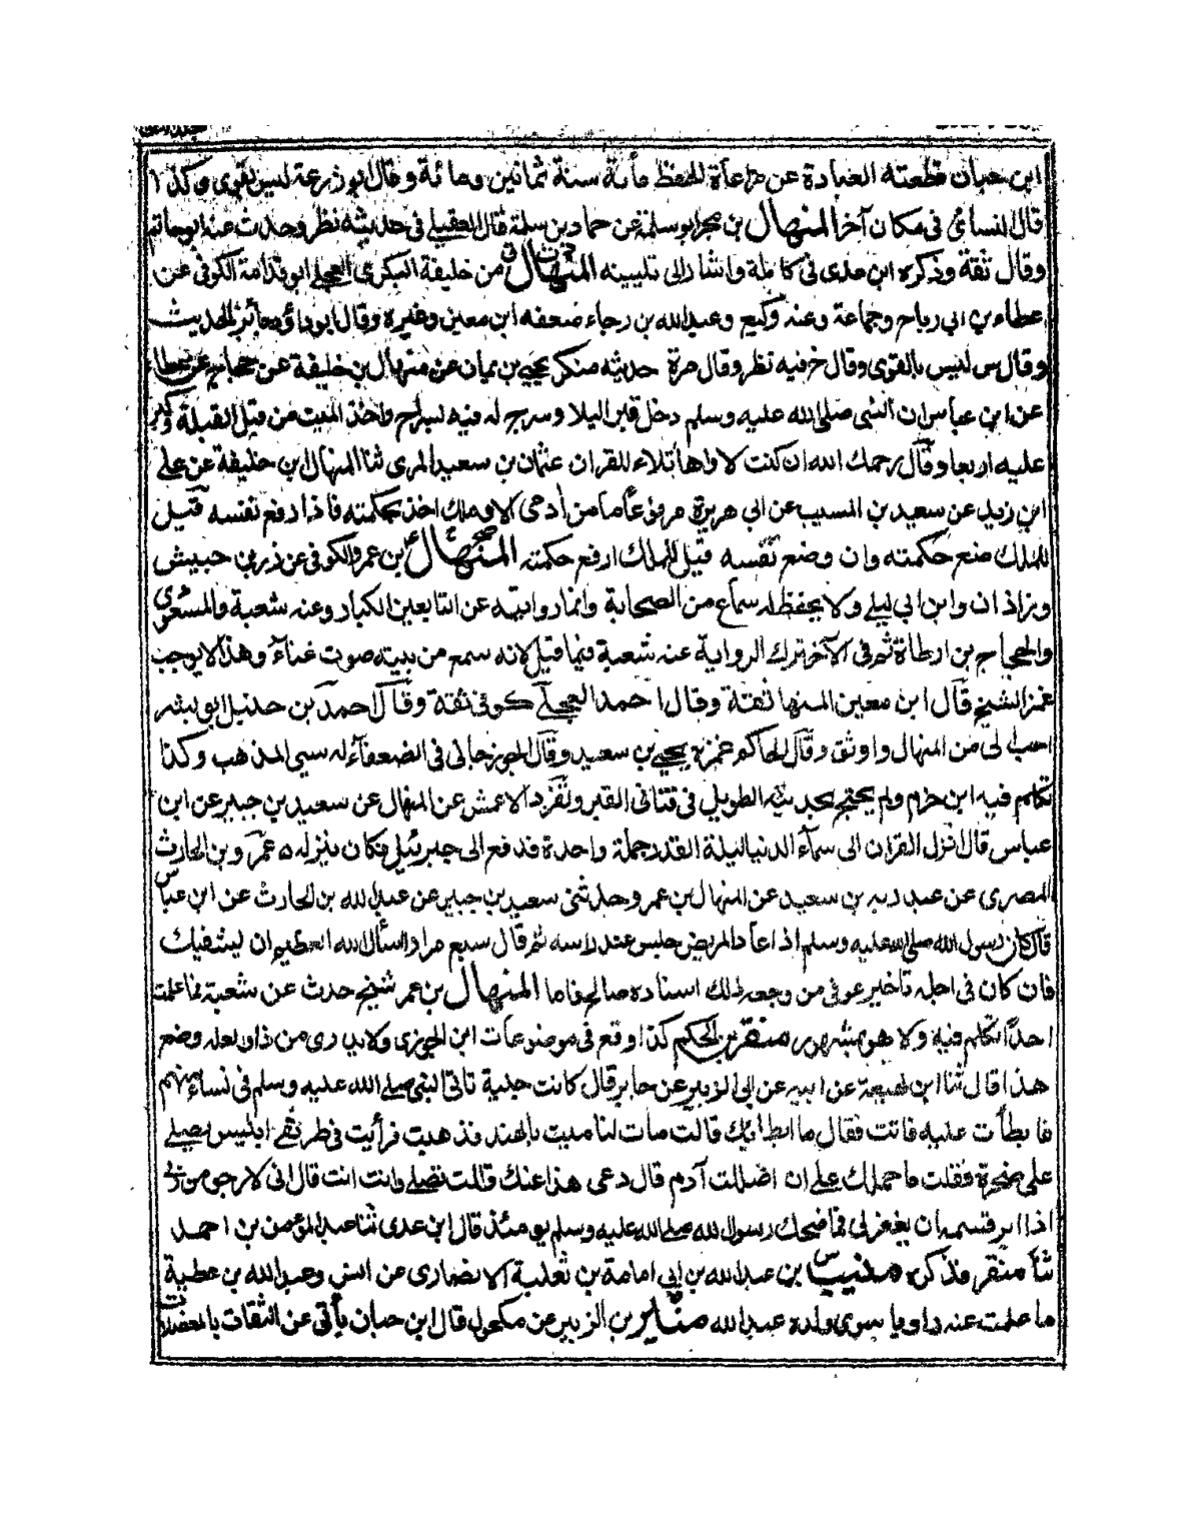 ابن حبان قطعته العبادة عن مراعاة الحفظ مات سنة ثمانين ومائة وقال ابو زرعة ليس بقوى وكذا
قال النسائى فى مكان آخر المنهال بن بحر ابو سلمة عن حماد بن سلمة قال العقيلے فى حديثه نظر وحدث عنه ابو حاتم
وقال ثقة وذكره ابن عدى فى كامله واشار الى تليينه المنهال بن خليفة البكرى العجلے ابو قدامة الكوفى عن
عطاء بن ابى رباح وجماعة وعنه وكيع وعبد الله بن رجاء ضعفه ابن معين وغيره وقال ابو داؤد جائز الحديث
وقال س ليس بالقوى وقال خ فيه نظر وقال مرة حديثه منكر يحيے بن يمان عن منهال بن خليفة عن حجاج عن عطاء
عن ابن عباس ان النبى صلى الله عليه وسلم دخل قبرا ليلا وسرج له فيه سراج واخذ الميت من قبل القبلة وكبر
عليه اربعا وقال رحمك الله ان كنت لاواها تلاء للقران عثمان بن سعيد المرى ثنا المنهال ابن خليفة عن علے
ابن زيد عن سعيد بن المسيب عن ابى هريرة مرفوعا ما من آدمى الا وملك اخذ بحكمته فاذا رفع نفسه قيل
للملك ضع حكمته وان وضع نفسه قيل للملك ارفع حكمته المنهال بن عمرو الكوفى عن زر بن حبيش
وزاذان وابن ابى ليلے ولا يحفظ له سماع من الصحابة وانما روايته عن التابعين الكبار وعنه شعبة والمسعودى
والحجاج بن ارطاة ثم فى الآخر ترك الرواية عنه شعبة فيما قيل لانه سمع من بيته صوت غناء وهذا لا يوجب
غمز الشيخ قال ابن معين المنها ثقة وقال احمد العجلے كوفى ثقة وقال احمد بن حنبل ابو بشر
احب الى من المنهال واوثق وقال الحاكم غمزه يحيے بن سعيد وقال الجوزجانى فى الضعفاء له سيى المذهب وكذا
تكلم فيه ابن حزام ولم يحتج بحديثه الطويل فى فتانى القبر وتفرد الاعمش عن المنهال عن سعيد بن جبير عن ابن
عباس قال انزل القران الى سمآء الدنيا ليلة القدر جملة واحدة فدفع الى جبرئيل فكان ينزله ٥ عمرو بن الحارث
المصرى عن عبد ربه بن سعيد عن المنهال بن عمرو حدثنى سعيد بن جبير عن عبد الله بن الحارث عن ابن عباس
قال كان رسول الله صلى الله عليه وسلم اذا عاد المريض جلس عند راسه ثم قال سبع مرار اسأل الله العظيم ان يشفيك
فان كان فى اجله تأخير عوفى من وجعه ذلك اسناده صالح فاما المنهال بن عمر شيخ حدث عن شعبة فما علمت
احدًا تكلم فيه ولا هو بمشهور منقر بن الحكم كذا وقع فى موضوعات ابن الجوزى ولا يدرى من ذا ولعله وضع
هذا قال ثنا ابن لهيعة عن ابيه عن ابى الزبير عن جابر قال كانت جنية تاتى النبى صلے الله عليه وسلم فى نساء منهم
فابطأت عليه فاتت فقال ما ابطا بك قالت مات لنا ميت بالهند فذهبت فرأيت فى طريقے ابليس يصلے
على صخرة فقلت ما حملك علے ان اضللت آدم قال دعى هذا عنك قالت تصلے وانت انت قال انى لارجو من ربى
اذا ابر قسمه ان يغفر لى فما ضحك رسول الله صلے الله عليه وسلم يومئذ قال ابن عدى ثنا عبد المؤمن بن احمد
ثنا منقر فذكره منيب بن عبد الله بن ابى امامة بن ثعلبة الانصارى عن ابيه وعبد الله بن عطية
ما علمت عنه راويا سوى ولده عبد الله منير بن الزبير عن مكحول قال ابن حبان يأتى عن الثقات بالمعضلات